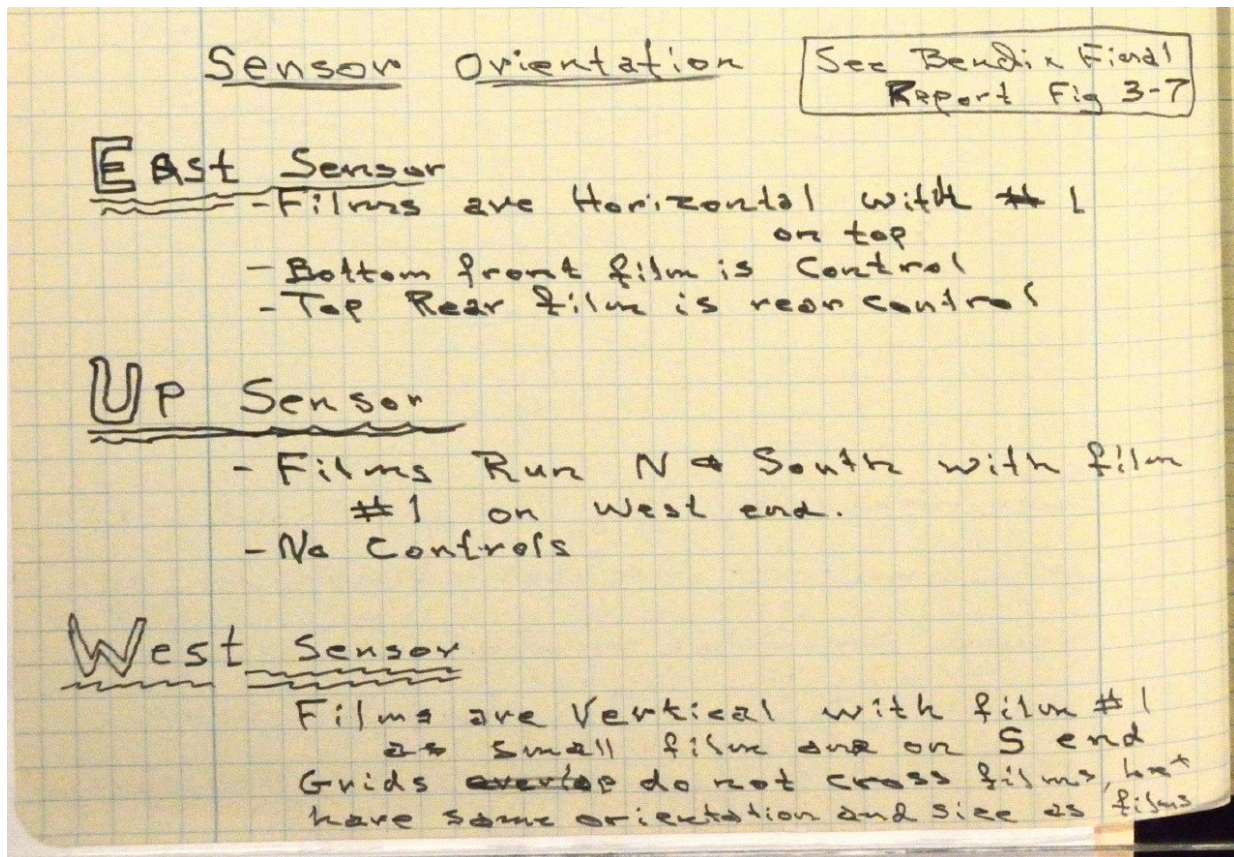 Sensor Orientation
See Bendix Final
Report Fig 3-7
East Sensor
- Films are Horizontal with # 1
on top
- Bottom front film is Control
- Top Rear film is rear control
Up Sensor
- Films Run N & South with film
#1 on West end.
- No Controls
West Sensor
Films are Vertical with film #1
as small film and on S end
Grids do not cross films, but
have same orientation and size as films